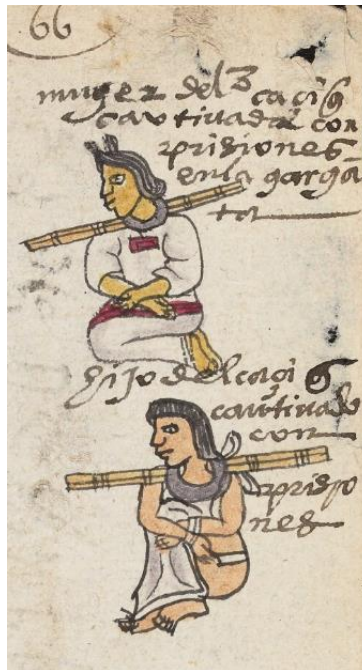 66
muger del caciq̄
cautiuada con
prisiones
en la gargā
ta
hijo del caciq̄
cautiuado
con
prisio
nes